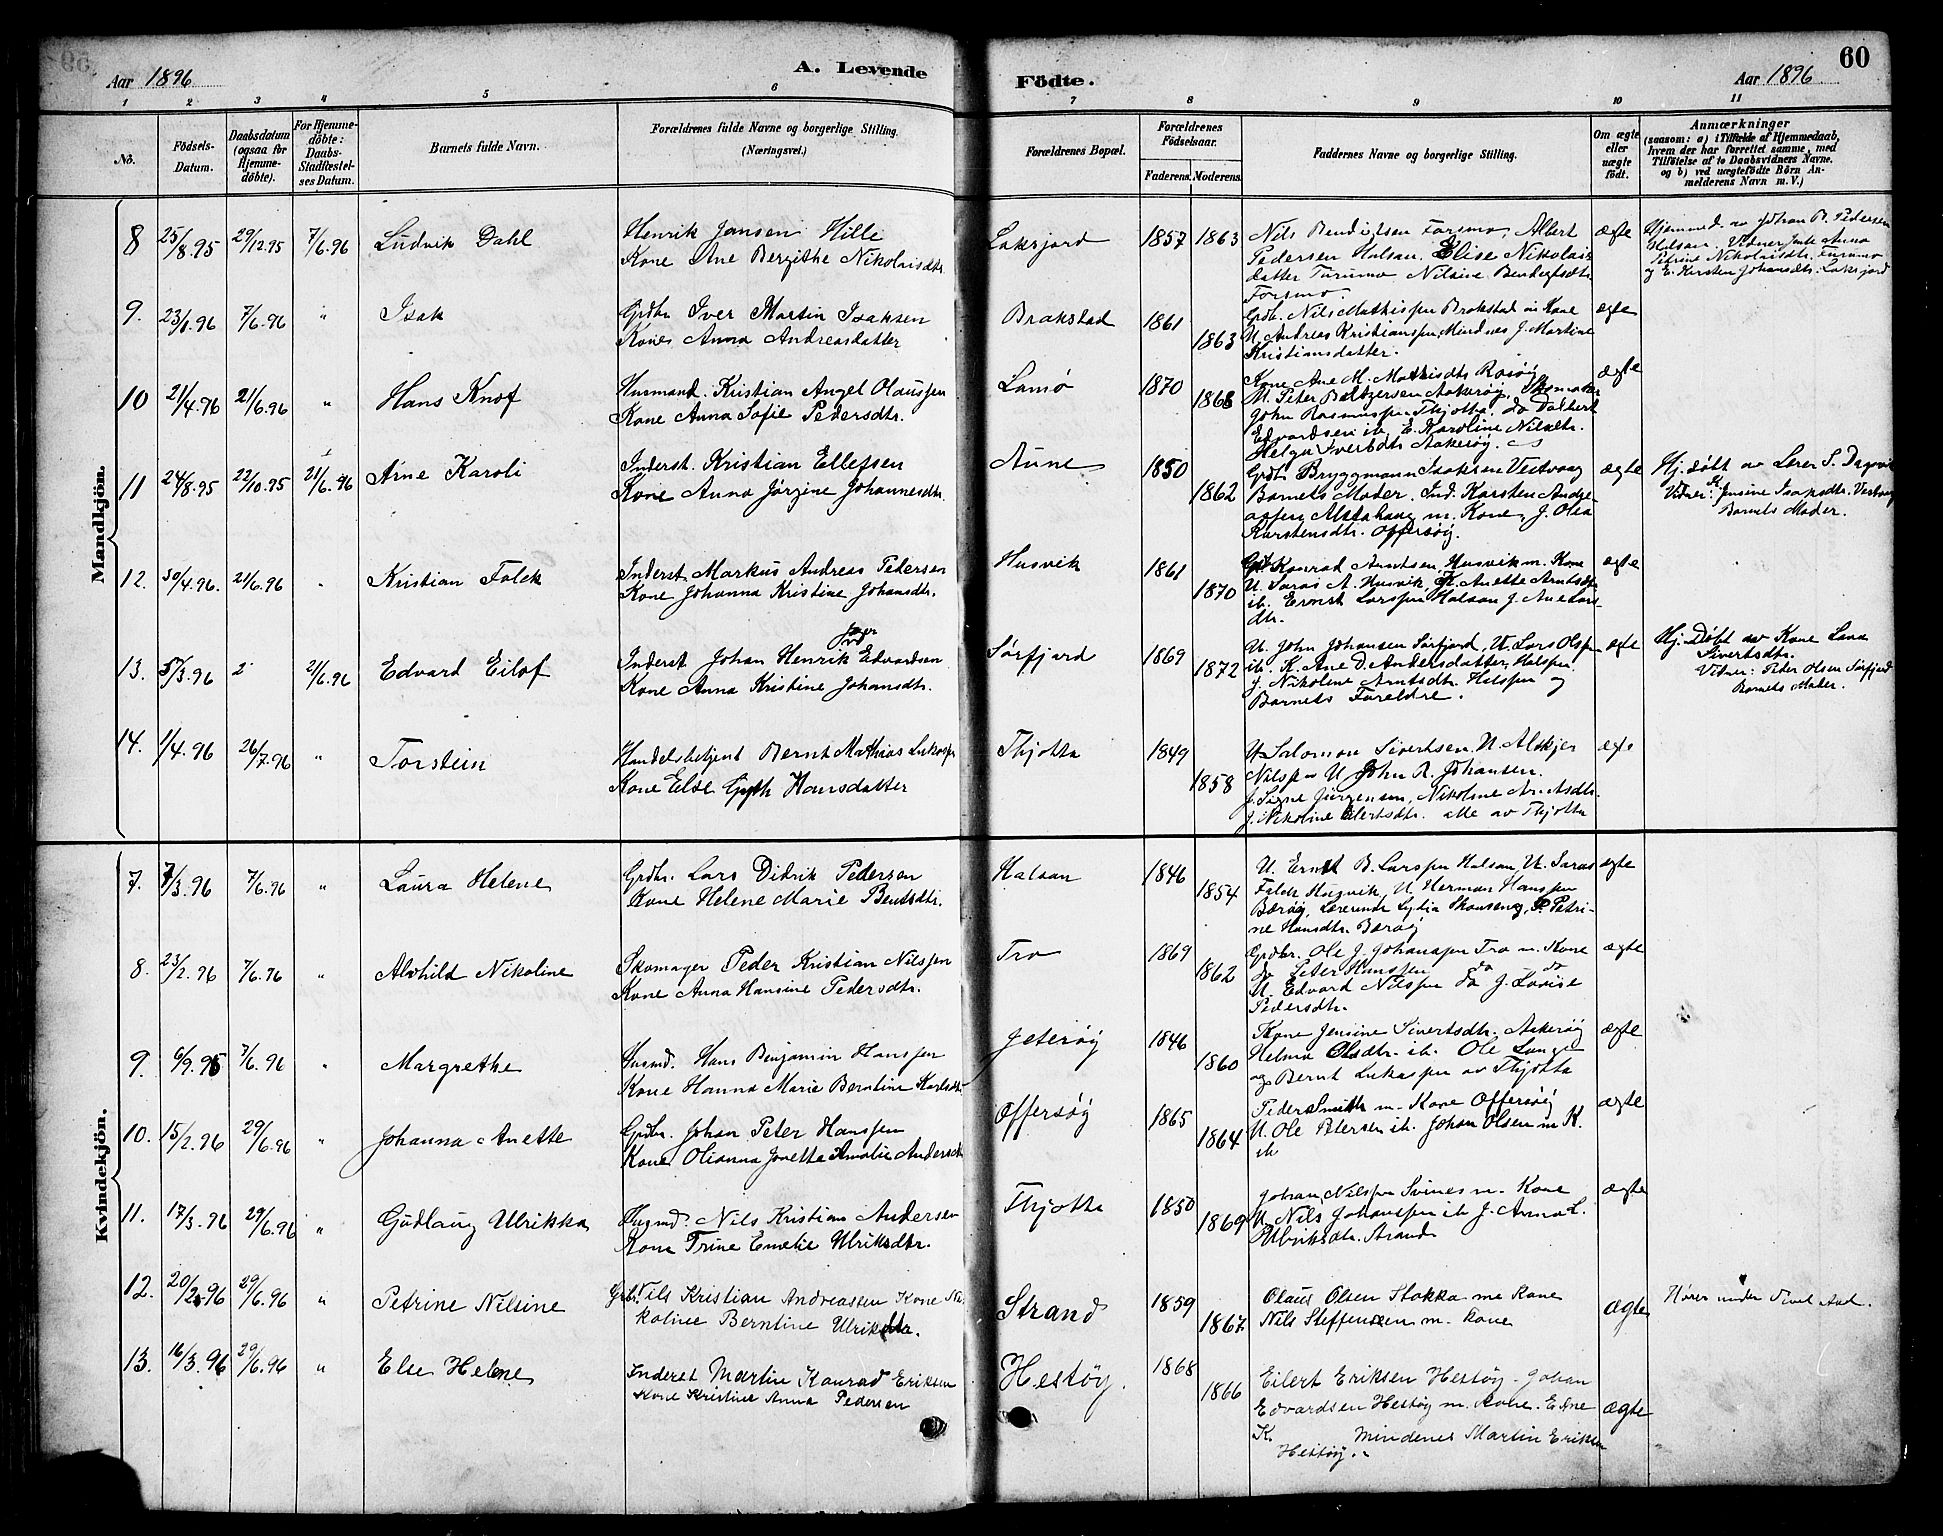 Aar 1896
A. Levende
Födte.
Aar 1896
60
1 2 3 4 5 6 7 8 9 10 11
No.
Födsels-
Datum.
Daabsdatum
(ogsaa for
Hjemme-
döbte).
For Hjemme-
döbte:
Daabs-
Stadfæstel-
ses Datum.
Barnets fulde Navn.
Forældrenes fulde Navne og borgerlige Stilling.
(Næringsvei.)
Forældrenes Bopæl.
Forældrenes
Födselsaar.
Faderens. Moderens.
Faddernes Navne og borgerlige Stilling.
Om ægte
eller
uægte
født.
Anmærkninger
(saasom: a) i Tilfælde af Hjemmedaab,
hvem der har forrettet samme, med
Tilföielse af to Daabsvidners Navne.
og b) ved uægtefödte Börn An-
melderens Navn m. V.)
Mandkjön.
8 25/8.95 29/12.95 7/6.96 Ludvik Dahl
Henrik Jansen Hille
Kone Ane Bergithe Nikolaisdtr.
Laksjord 1857 1863
Nils Bendigtsen Forsmo, Albert
Pedersen Halsan. Elise Nikolais
datter Turumo Nilsine Bendigtsdtr.
Forsmo.
ægte
Hjemmed. av Johan R. Pedersen
Halsan. Vidner Enke Anna
Petrine Nikolaisdtr. Turumo
og E. Kirsten Johansdtr. Laksjord
9. 23/1.96 7/6.96 " Isak
Grdbr Iver Martin Isaksen
Kone Anna Andreasdatter
Brakstad 1861 1863
Grdb. Nils Mathispen Brakstad m Kone
U. Andreas Kristianspen Mindnes J. Martine
Kristiansdatter.
ægte
10 21/4.96 21/6.96 " Hans Knof
Husmand. Kristian Angel Olauspen
Kone Anna Sofie Pedersdtr.
Lamø 1870 1868
Kone Ane M. Mathisdtr Rosøg
M. Peter Baltzersen Aakerøg, Skomaker
John Rasmuspen Thjotta, do Dalbert
Edvardsen ib. E. Karoline Nilsdtr.
Helga Iversdtr Aakerøg.
ægte
11 24/8.95 22/10.95 21/6.96 Arne Karoli
Inderst. Kristian Ellefsen
Kone Anna Jørgine Johannesdtr.
Aune 1850 1862
Grdb. Bryggmann Isaksen Vestvaag
Barnets Moder. Ind. Karsten Andre-
aspen Alstahaug m. Kone, J. Olea
Karstensdtr. Offersøg.
ægte
Hj. døbt av Lærer S. Dagsvik
Vidner: K. Jensine Isaksdtr. Vestvaag
Barnets Moder.
12. 30/4.96. 21/6.96 " Kristian Falck
Inderst Markus Andreas Pedersen
Kone Johanna Kristine Johansdtr.
Husvik 1861 1870
Grdb Konrad Arntsen, Husvik m. Kone
U. Saras A. Husvik, K. Anette Arntsdtr
ib. Ernst Larspen Halsan J. Ane Lars-
dtr.
ægte
13. 5/3.96 21/6.96 Edvard Eilof
Inderst Johan Henrik Edvardsen
Kone Anna Kristine Johansdtr.
Sørfjord 1869 1872
U. John Johansen Sørfjord, U. Lars Olspen
ib. K. Ane D. Andersdatter, Halspen
J. Nikoline Arntsdtr. Halspen og
Barnets Foreldre.
ægte
Hj. Døbt av Kone Lana
Sivertsdtr.
Vidner: Peter Olsen Sørfjord
Barnets Moder.
14. 1/4.96 26/7.96 " Torstein
Handelsbetjent Bernt Mathias Lukaspen
Kone Else Gyth Hansdatter
Thjotta 1849 1858
U. Salomon Sivertsen. U. Alskjer
Nilspen U John R. Johansen.
J. Signe Jürgensen, Nikoline Arntsdtr.
J. Nikoline Eilertsdtr. alle av Thjotta
Kvindekjön.
7. 7/3.96 7/6.96 " Laura Helene
Grdbr. Lars Didrik Pedersen
Kone Helene Marie Bentsdtr.
Halsan 1846 1854
U. Ernst B. Larspen Halsan U. Saras
Falch Husvik, U. Herman Hanspen
Bærøg, Lærerinde Lydia Skonseng, P. Petri-
ne Hansdtr. Bærøg
ægte
8. 23/2.96 7/6.96 " Alvhild Nikoline
Skomager Peder Kristian Nilspen
Kone Anna Hansine Pedersdtr.
Tro 1869 1862
Grdbr. Ole J. Johanspen Tro m. Kone
do Peter Hanspen do do
U. Edvard Nilspen do J. Lovise
Pedersdtr.
ægte
9. 6/9.95 7/6.96 " Margrethe
Husmd. Hans Benjamin Hanspen
Kone Hanna Marie Berntine Karlsdtr
Jeterøg 1846 1860
Kone Jensine Sivertsdtr. Aakerøg
Helma Olsdtr. ib. Ole Lange
og Bernt Lukaspen av Thjotta
ægte
10. 15/2.96 29/6.96 " Johanna Anette
Grdbr. Johan Peter Hanspen
Kone Olianna Jonette Amalie Andersdt
Offersøg 1865 1864
Peder Smith m. Kone Offersøg
U. Ole Petersen ib. Johan Olsen m K.
ib
ægte
11. 17/3.96 29/6.96 " Gudlaug Ulrikka
Husmd. Nils Kristian Andersen
Kone Trine Emelie Ulriksdtr.
Thjotta 1850 1869
Johan Nilspen Svines m. Kone
U. Nils Johanspen ib J. Anna L.
Ulriksdtr. Strand
ægte
12. 20/2.96 29/6.96 " Petrine Nilsine
Grbr. Nils Kristian Andreassen Kone Ni-
koline Berntine Ulriksdtr.
Strand 1859 1867
Olaus Olsen Stokka me Kone
Nils Steffensen m. Kone
ægte
Hører under
13. 16/3.96 29/6.96 " Else Helene
Inderst Martin Konrad Eriksen
Kone Kristine Anna Pedersen
Hestøy. 1868 1866
Eilert Eriksen Hestøy. Johan
Edvardsen Hestøy m. Kone. Edne
K. Mindenes Martin Eriksen
Hestøy.
ægte